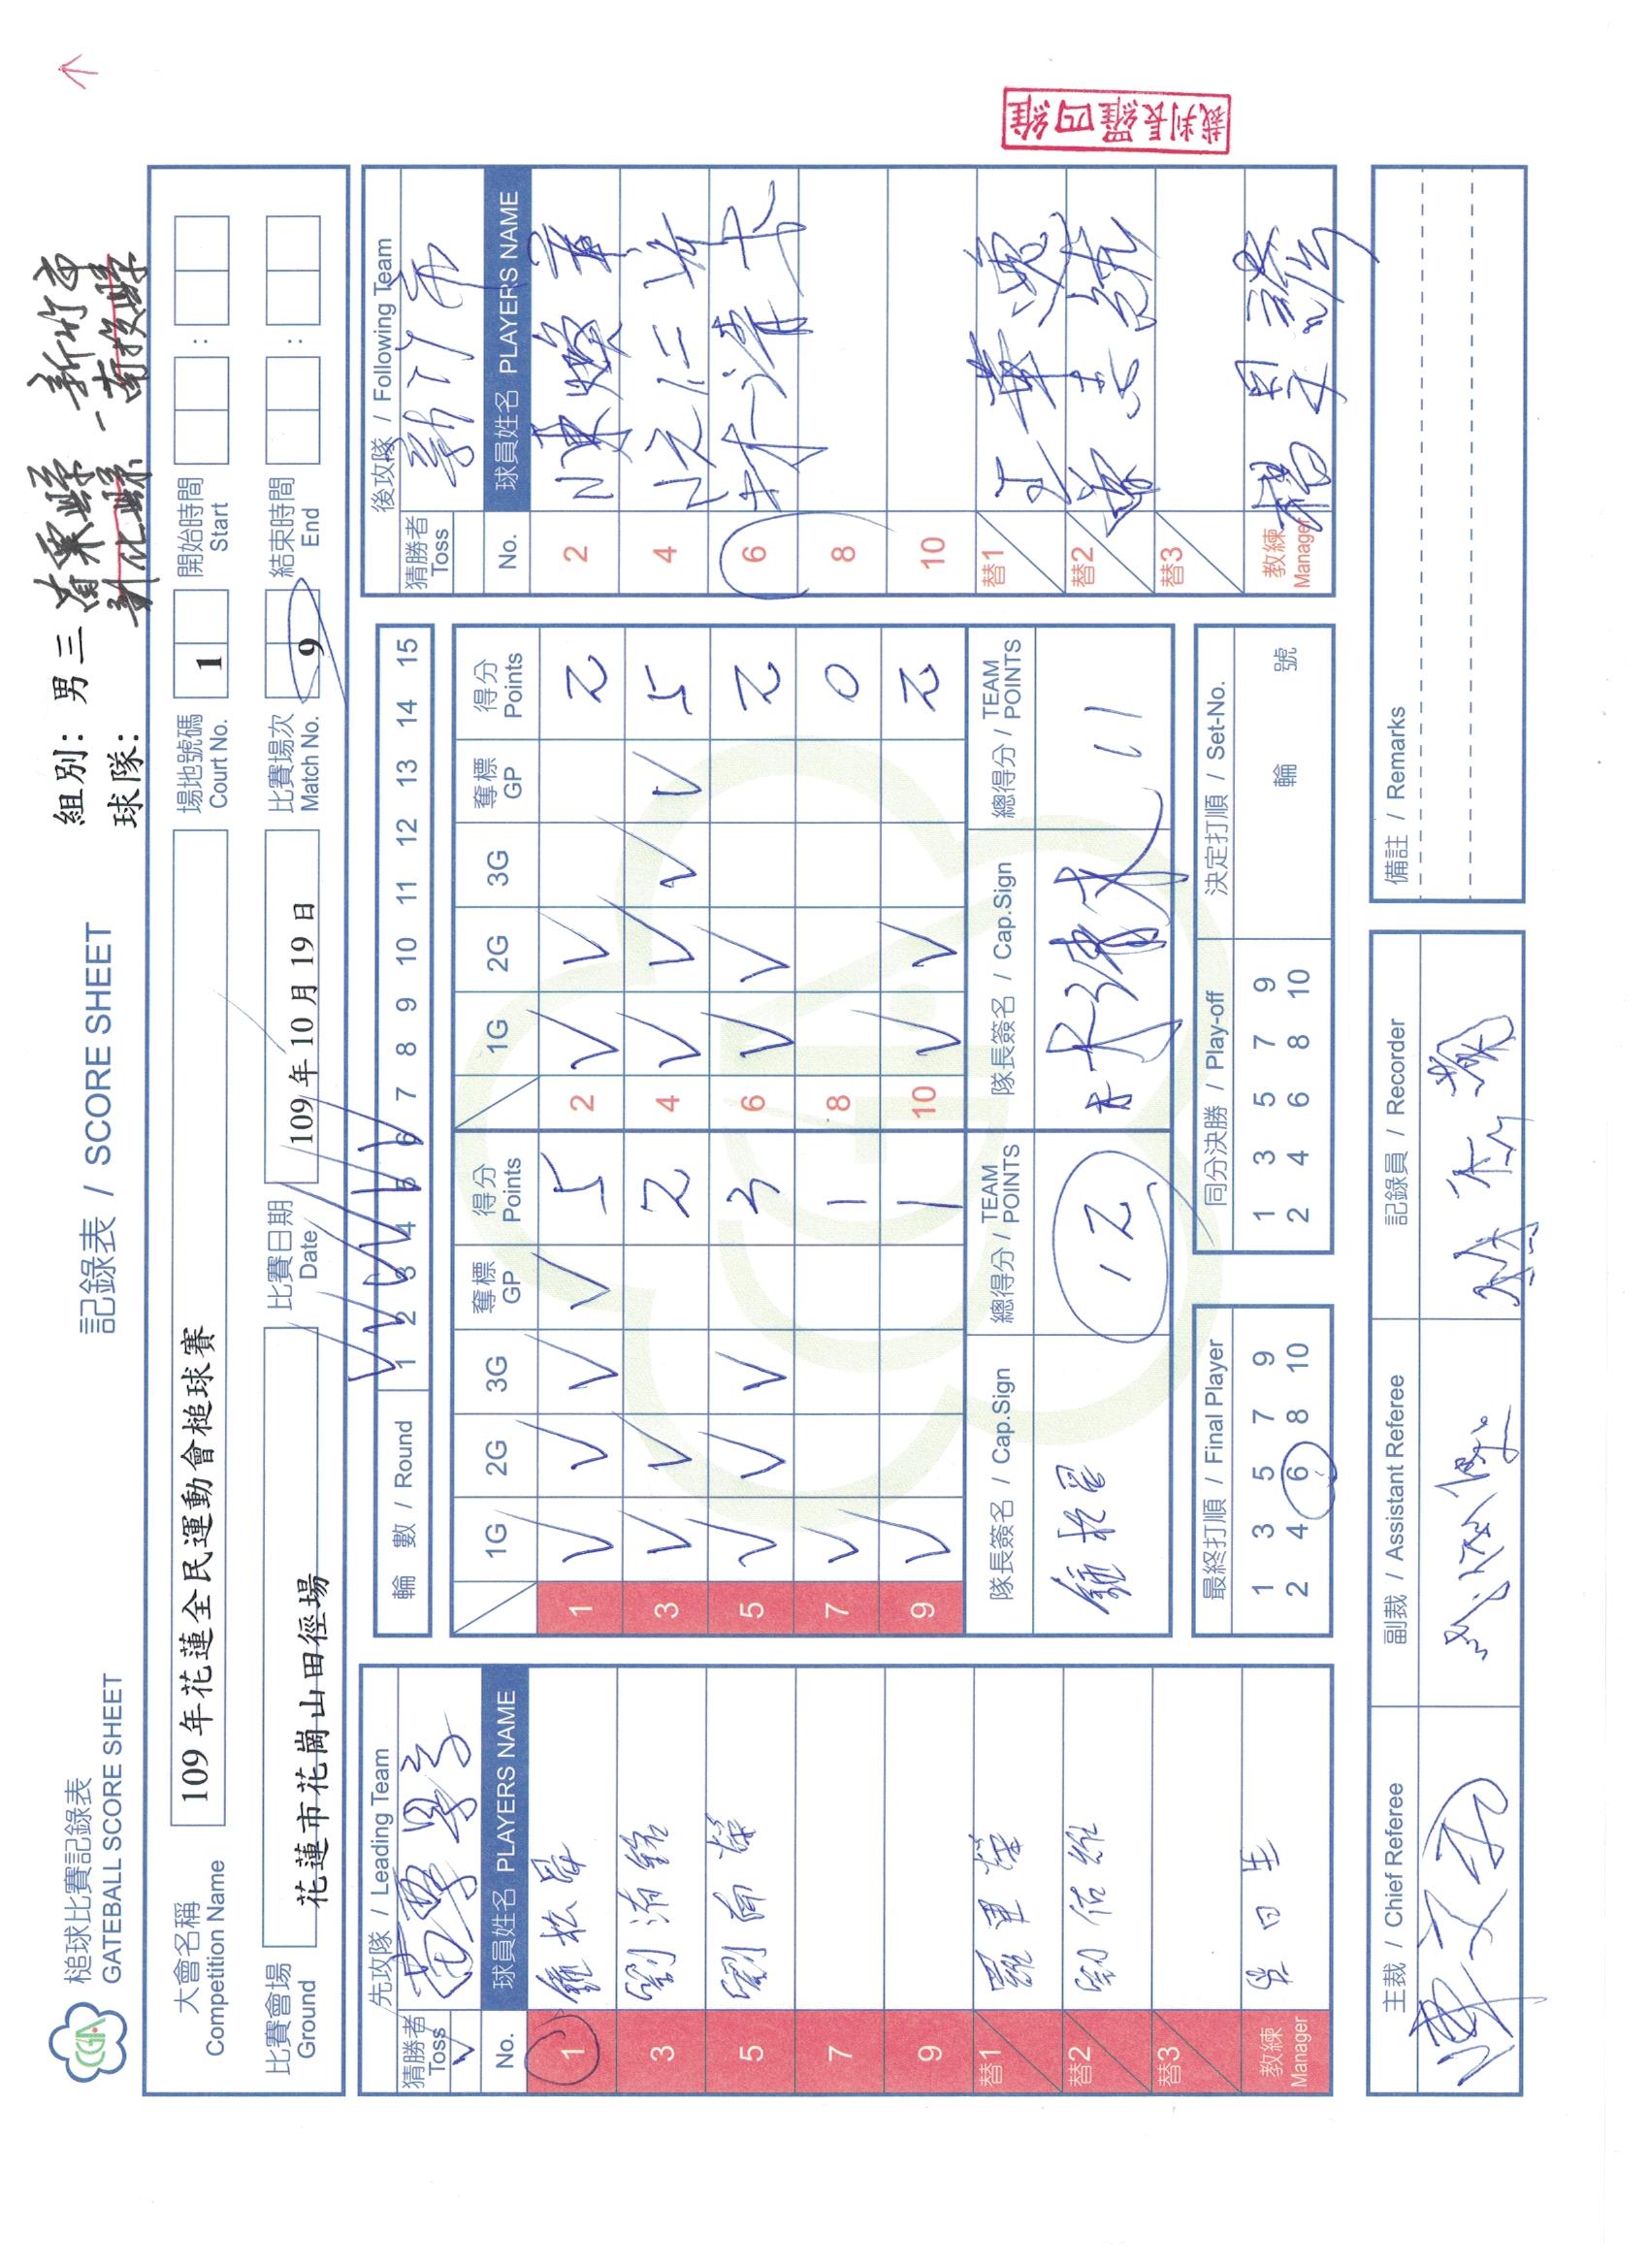 槌球比賽記錄表
GATEBALL SCORE SHEET
記錄表 / SCORE SHEET
組別: 男 三 苗栗縣 - 新竹市
球隊: 新北縣 南投縣
大會名稱 109 年花蓮全民運動會槌球賽 場地號碼 1 開始時間 :
Competition Name Court No. Start
比賽會場 花蓮市花崗山田徑場 比賽日期 109 年 10 月 19 日 比賽場次 9 結束時間 :
Ground Date Match No. End
先攻隊 / Leading Team
猜勝者 Toss ✓ 苗栗縣
No. 球員姓名 PLAYERS NAME
1 鍾松
3 劉 銘
5 劉
7
9
替1
替2 劉
替3
教練 Manager 日生
輪 數 / Round 1 2 3 4 5 6 7 8 9 10 11 12 13 14 15
1G 2G 3G 奪標 GP 得分 Points 1G 2G 3G 奪標 GP 得分 Points
1 V V V V 5 2 V V 2
3 V V 2 4 V V V V 5
5 V V V 3 6 V V 2
7 V 1 8 0
9 V 1 10 V V 2
隊長簽名 / Cap.Sign 總得分 / TEAM POINTS 隊長簽名 / Cap.Sign 總得分 / TEAM POINTS
鍾松 12 11
最終打順 / Final Player 同分決勝 / Play-off 決定打順 / Set-No.
1 3 5 7 9 1 3 5 7 9 輪 號
2 4 6 8 10 2 4 6 8 10
後攻隊 / Following Team
猜勝者 Toss 新竹市
No. 球員姓名 PLAYERS NAME
2
4
6 林清
8
10
替1
替2
替3
教練 Manager 楊
主裁 / Chief Referee 副裁 / Assistant Referee 記錄員 / Recorder 備註 / Remarks
陳文
裁判長羅四維